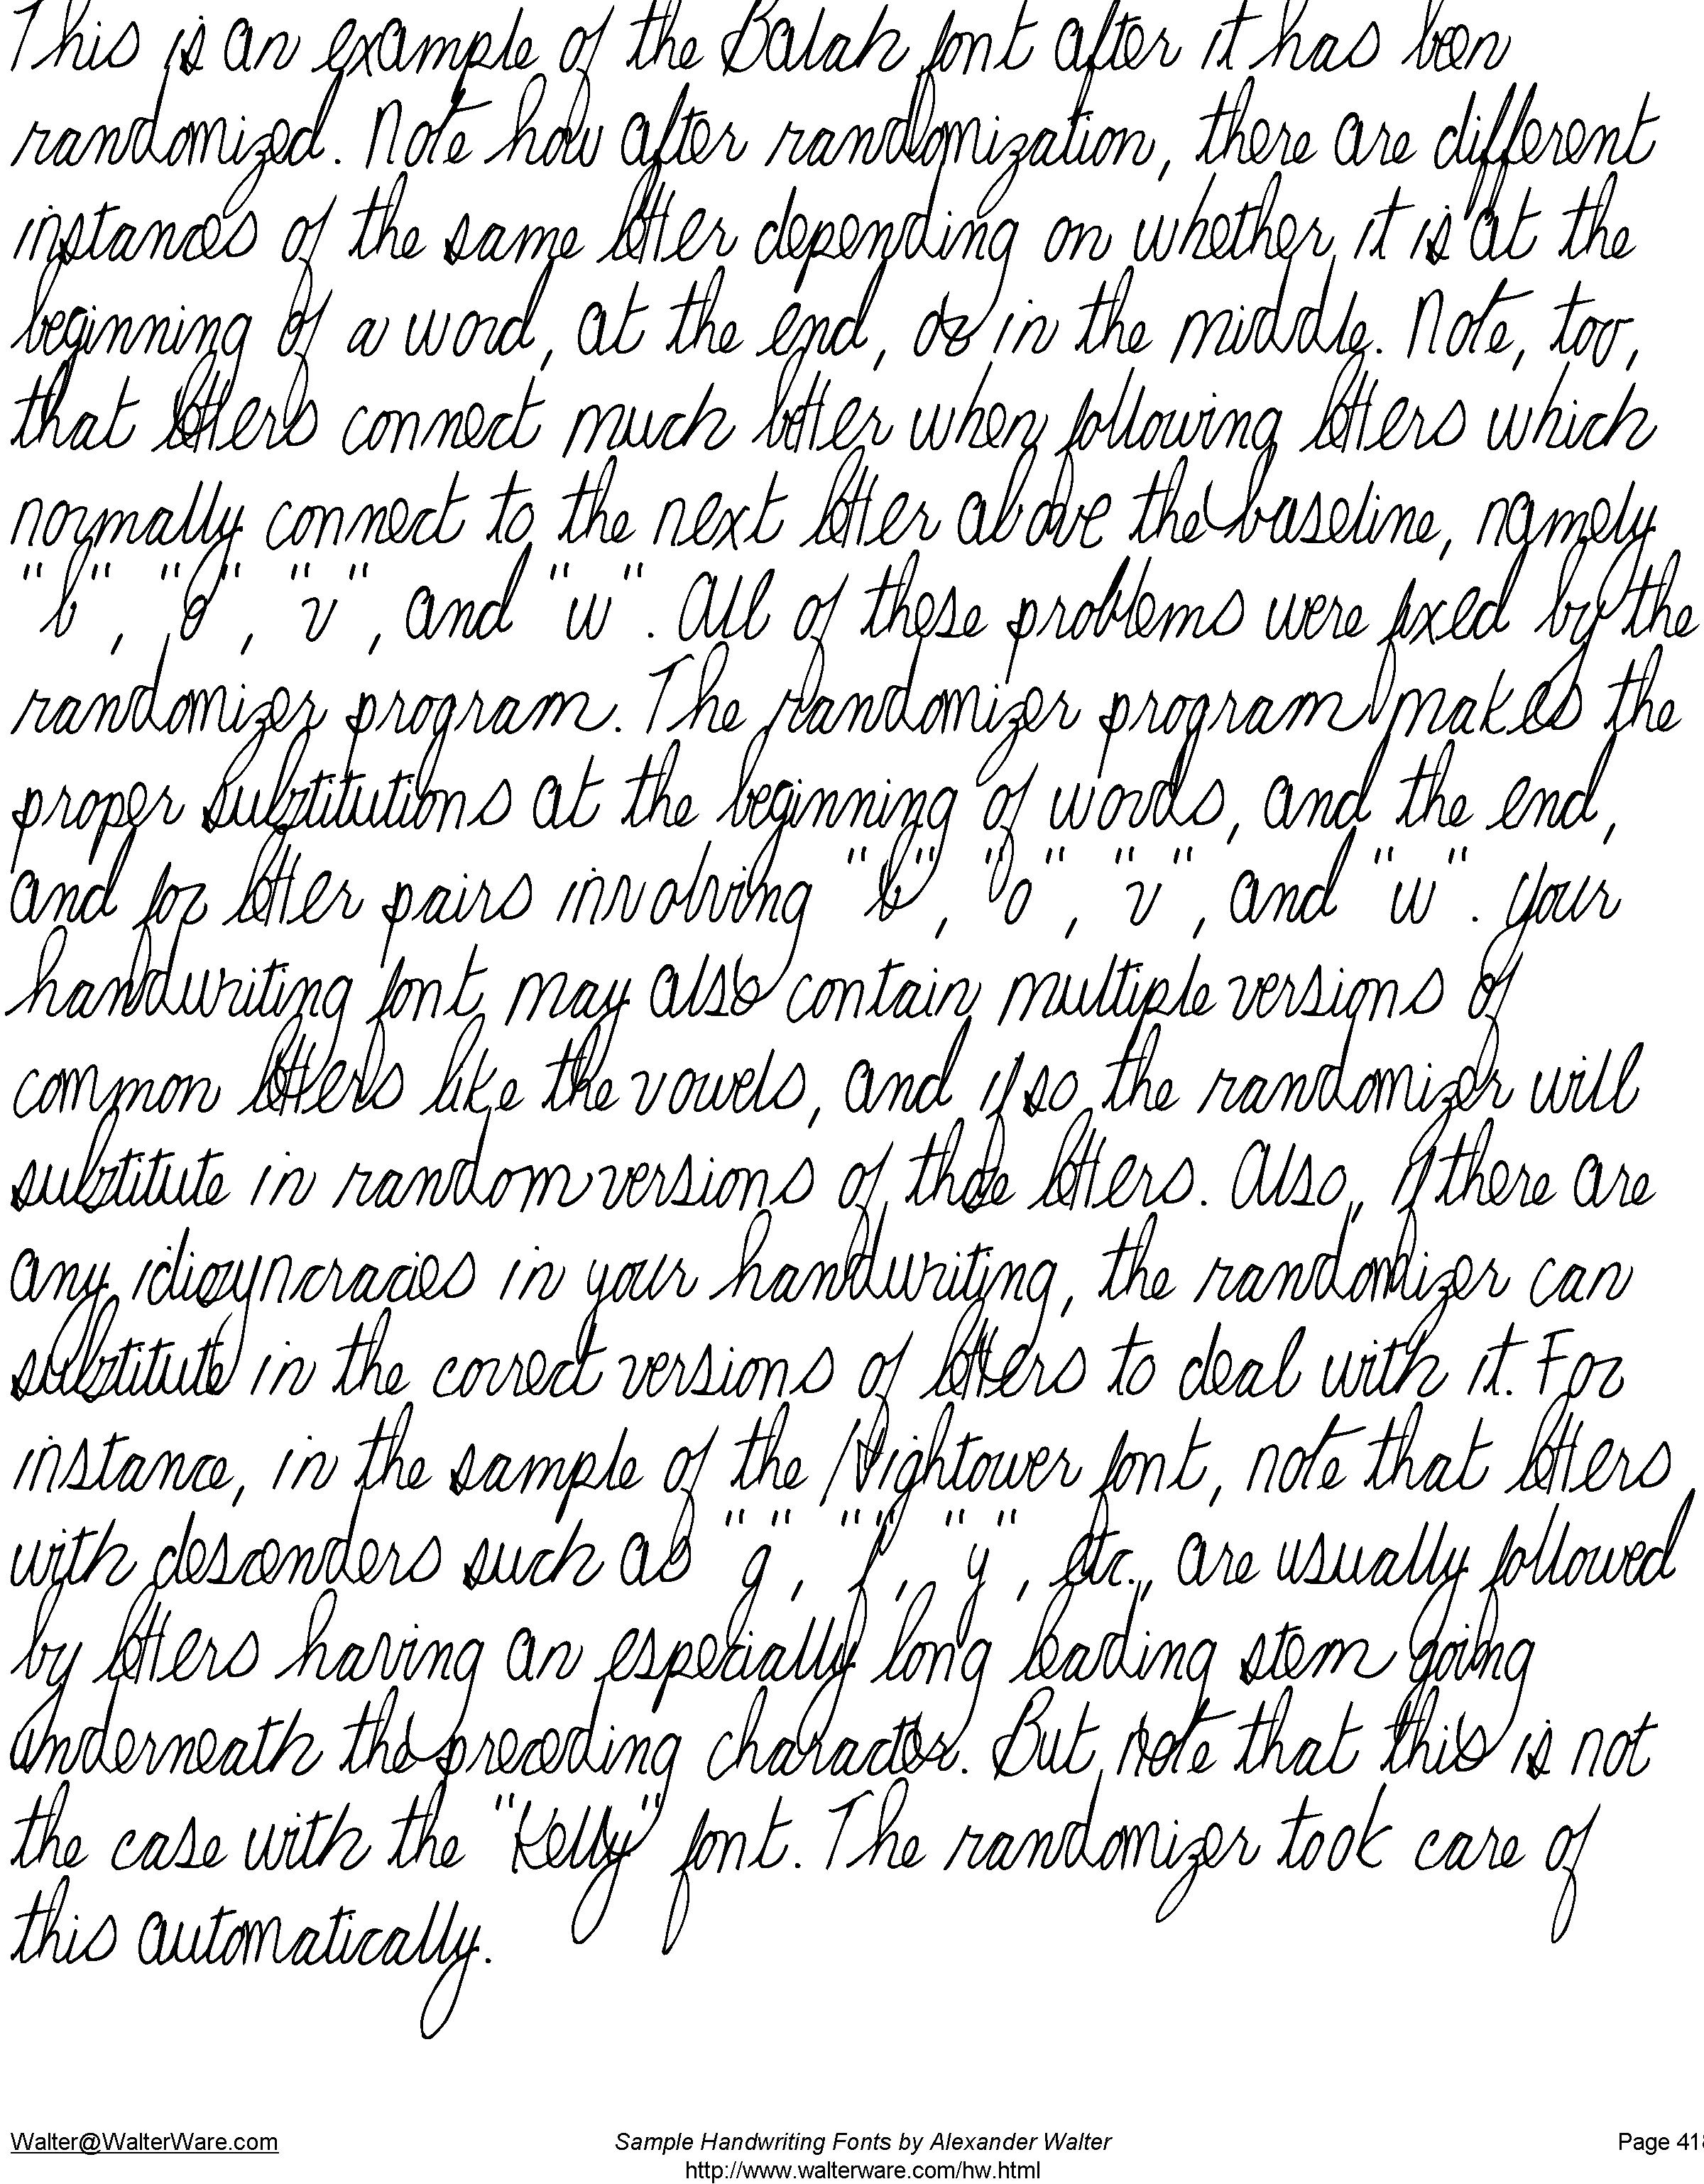 This is an example of the Balah font after it has been
randomized. Note how after randomization, there are different
instances of the same letter depending on whether it is at the
beginning of a word, at the end, or in the middle. Note, too,
that letters connect much better when following letters which
normally connect to the next letter above the baseline, namely
"b", "o", "v", and "w". All of these problems were fixed by the
randomizer program. The randomizer program makes the
proper substitutions at the beginning of words, and the end,
and for letter pairs involving "b", "o", "v", and "w". Your
handwriting font may also contain multiple versions of
common letters like the vowels, and if so the randomizer will
substitute in random versions of those letters. Also, if there are
any idiosyncracies in your handwriting, the randomizer can
substitute in the correct versions of letters to deal with it. For
instance, in the sample of the Hightower font, note that letters
with descenders such as "g", "f", "y", etc., are usually followed
by letters having an especially long leading stem going
underneath the preceding character. But note that this is not
the case with the "Kelly" font. The randomizer took care of
this automatically.
Walter@WalterWare.com Sample Handwriting Fonts by Alexander Walter Page 418
http://www.walterware.com/hw.html